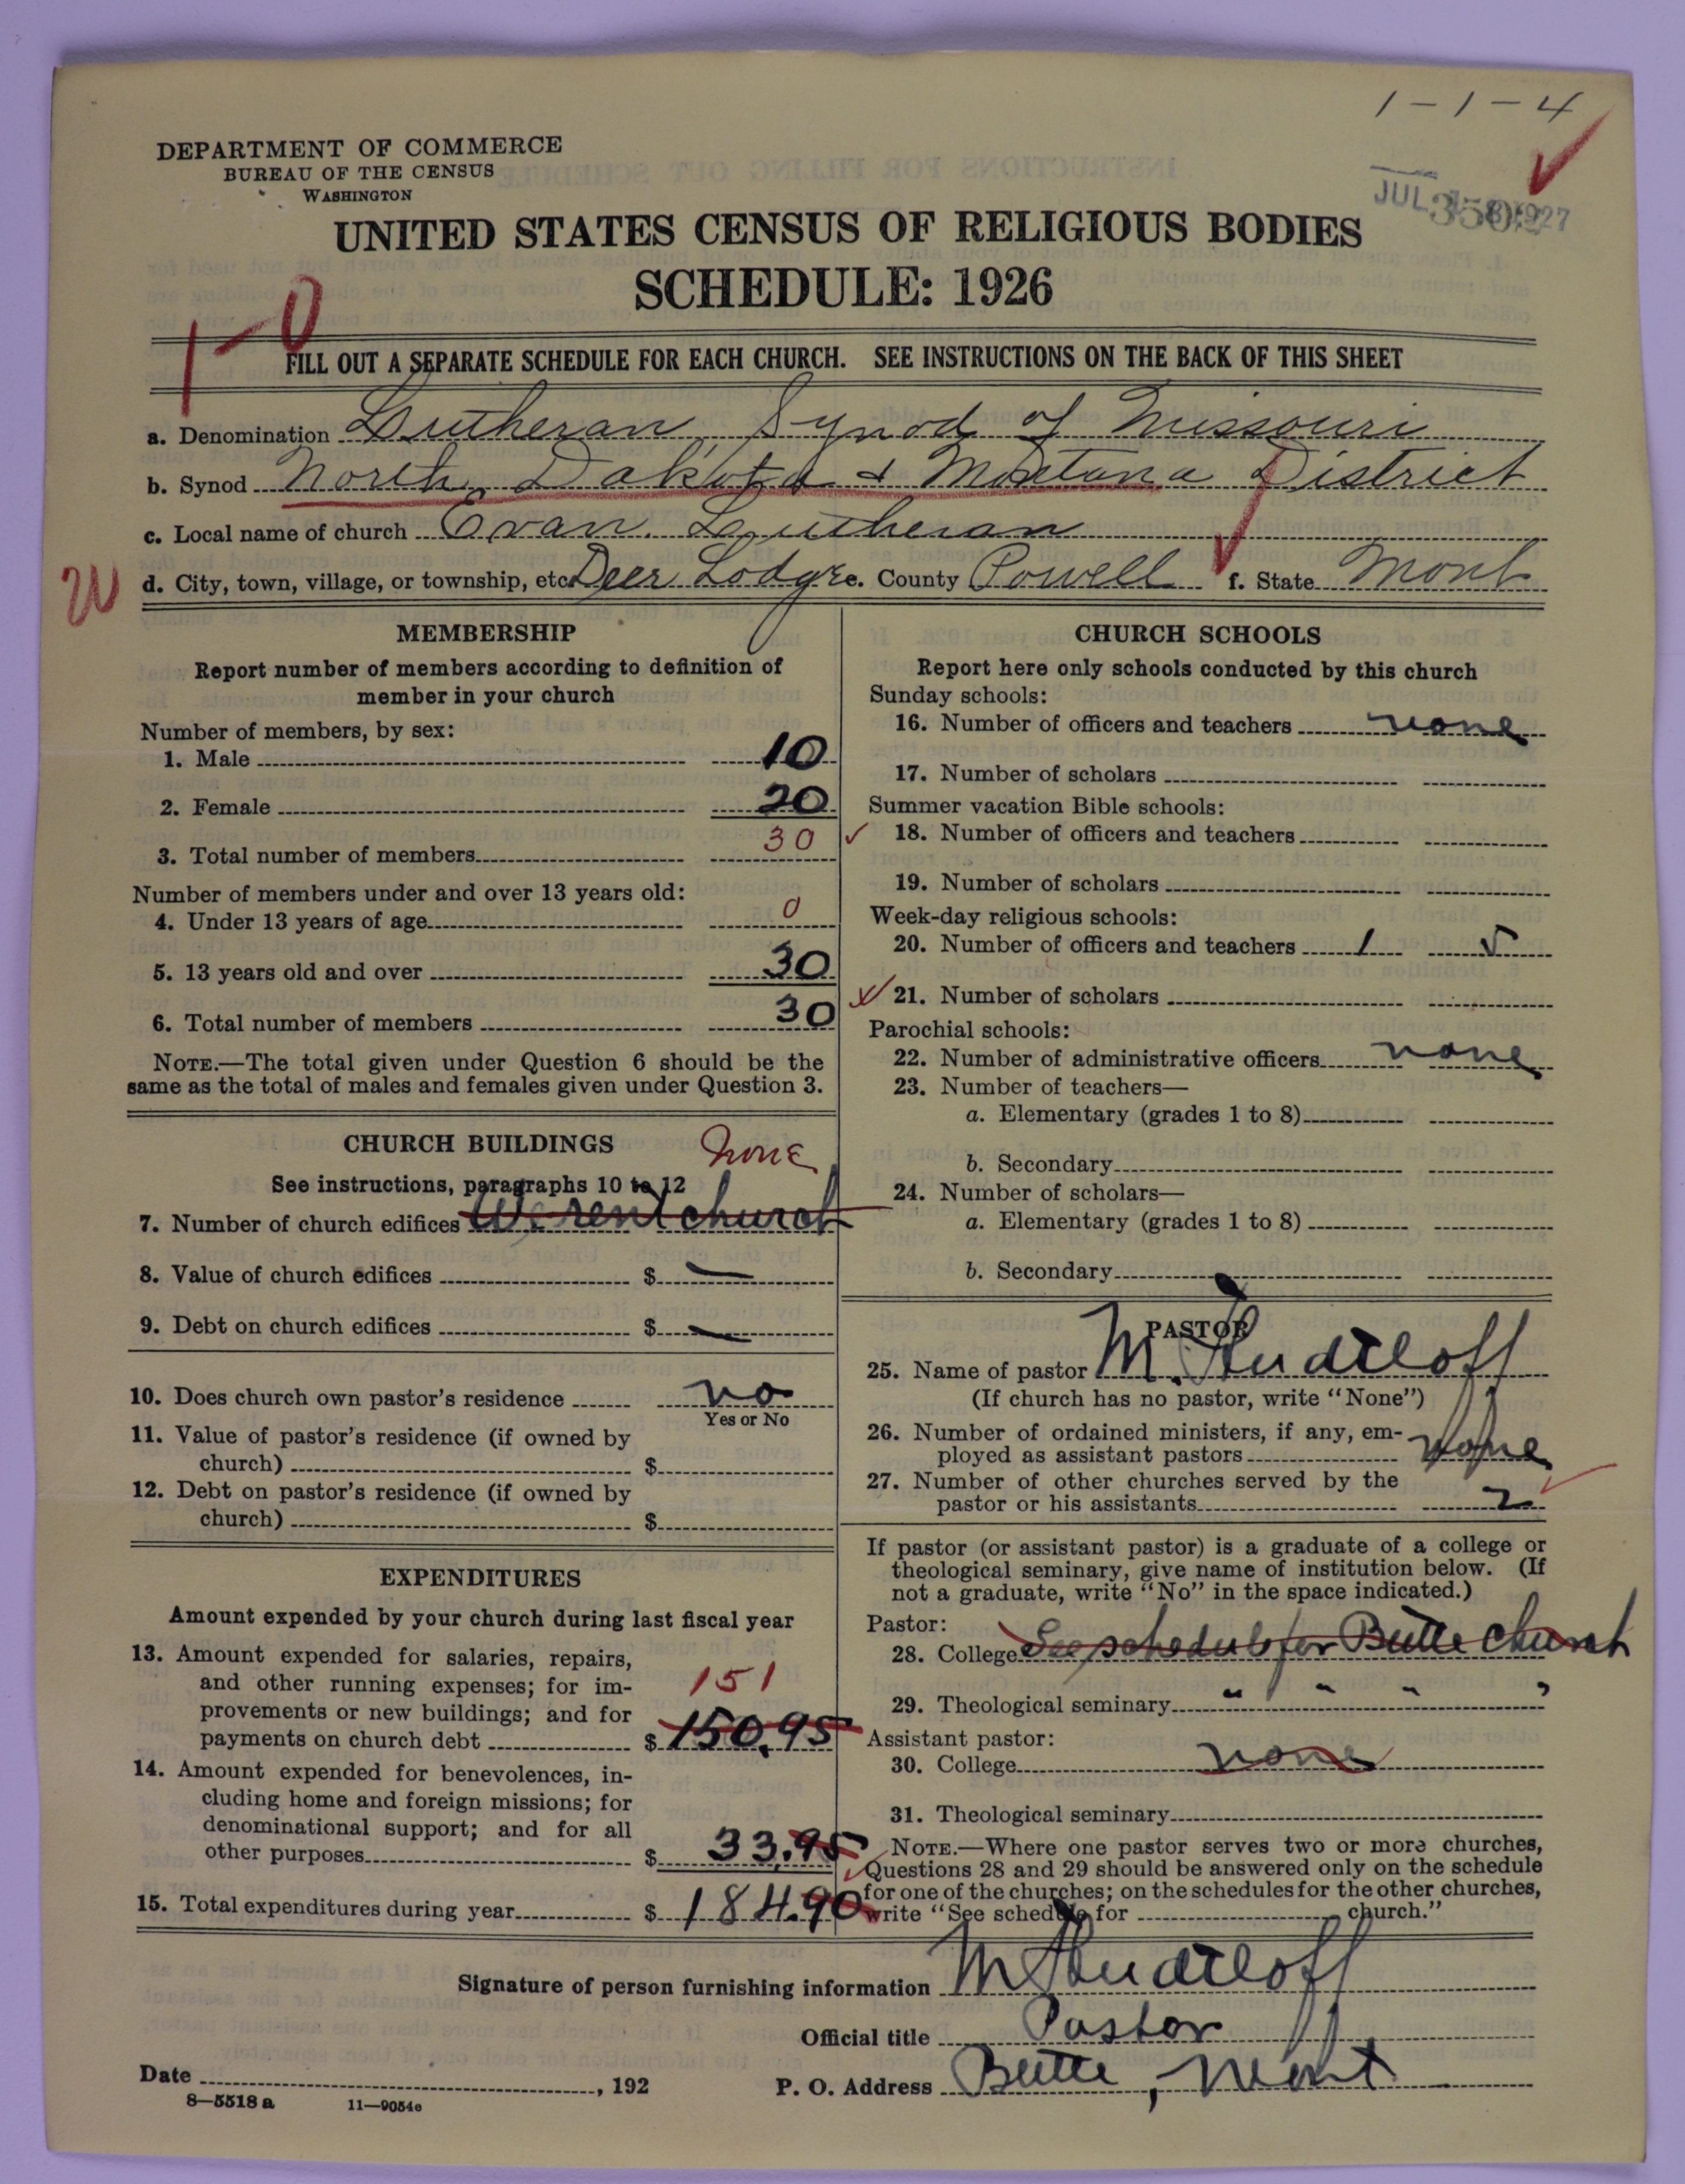 1-1-4
DEPARTMENT OF COMMERCE
BUREAU OF THE CENSUS
WASHINGTON
JUL 1927
UNITED STATES CENSUS OF RELIGIOUS BODIES
SCHEDULE: 1926
1-0
FILL OUT A SEPARATE SCHEDULE FOR EACH CHURCH. SEE INSTRUCTIONS ON THE BACK OF THIS SHEET
a. Denomination Lutheran Synod of Missouri
b. Synod North Dakota & Montana District
c. Local name of church Evan. Lutheran
d. City, town, village, or township, etc. Deer Lodge e. County Powell f. State Mont
MEMBERSHIP
Report number of members according to definition of
member in your church
Number of members, by sex:
1. Male 10
2. Female 20
3. Total number of members 30
Number of members under and over 13 years old:
4. Under 13 years of age 0
5. 13 years old and over 30
6. Total number of members 30
NOTE.—The total given under Question 6 should be the
same as the total of males and females given under Question 3.
CHURCH BUILDINGS
none
See instructions, paragraphs 10 to 12
7. Number of church edifices We rent church
8. Value of church edifices $ —
9. Debt on church edifices $ —
10. Does church own pastor's residence no
Yes or No
11. Value of pastor's residence (if owned by
church) $
12. Debt on pastor's residence (if owned by
church) $
EXPENDITURES
Amount expended by your church during last fiscal year
13. Amount expended for salaries, repairs,
and other running expenses; for im-
151
provements or new buildings; and for
payments on church debt $ 150.95
14. Amount expended for benevolences, in-
cluding home and foreign missions; for
denominational support; and for all
other purposes $ 33.95
15. Total expenditures during year $ 184.90
CHURCH SCHOOLS
Report here only schools conducted by this church
Sunday schools:
16. Number of officers and teachers none
17. Number of scholars
Summer vacation Bible schools:
18. Number of officers and teachers
19. Number of scholars
Week-day religious schools:
20. Number of officers and teachers 1 5
21. Number of scholars
Parochial schools:
22. Number of administrative officers none
23. Number of teachers—
a. Elementary (grades 1 to 8)
b. Secondary
24. Number of scholars—
a. Elementary (grades 1 to 8)
b. Secondary
PASTOR
25. Name of pastor M.
(If church has no pastor, write "None")
26. Number of ordained ministers, if any, em-
ployed as assistant pastors none
27. Number of other churches served by the
pastor or his assistants 2
If pastor (or assistant pastor) is a graduate of a college or
theological seminary, give name of institution below. (If
not a graduate, write "No" in the space indicated.)
Pastor:
28. College See schedule for Butte Church
29. Theological seminary " " " "
Assistant pastor:
30. College none
31. Theological seminary
NOTE.—Where one pastor serves two or more churches,
Questions 28 and 29 should be answered only on the schedule
for one of the churches; on the schedules for the other churches,
write "See schedule for church."
Signature of person furnishing information M
Official title Pastor
Date , 192
P. O. Address Butte, Mont
8—5518 a 11—9054c